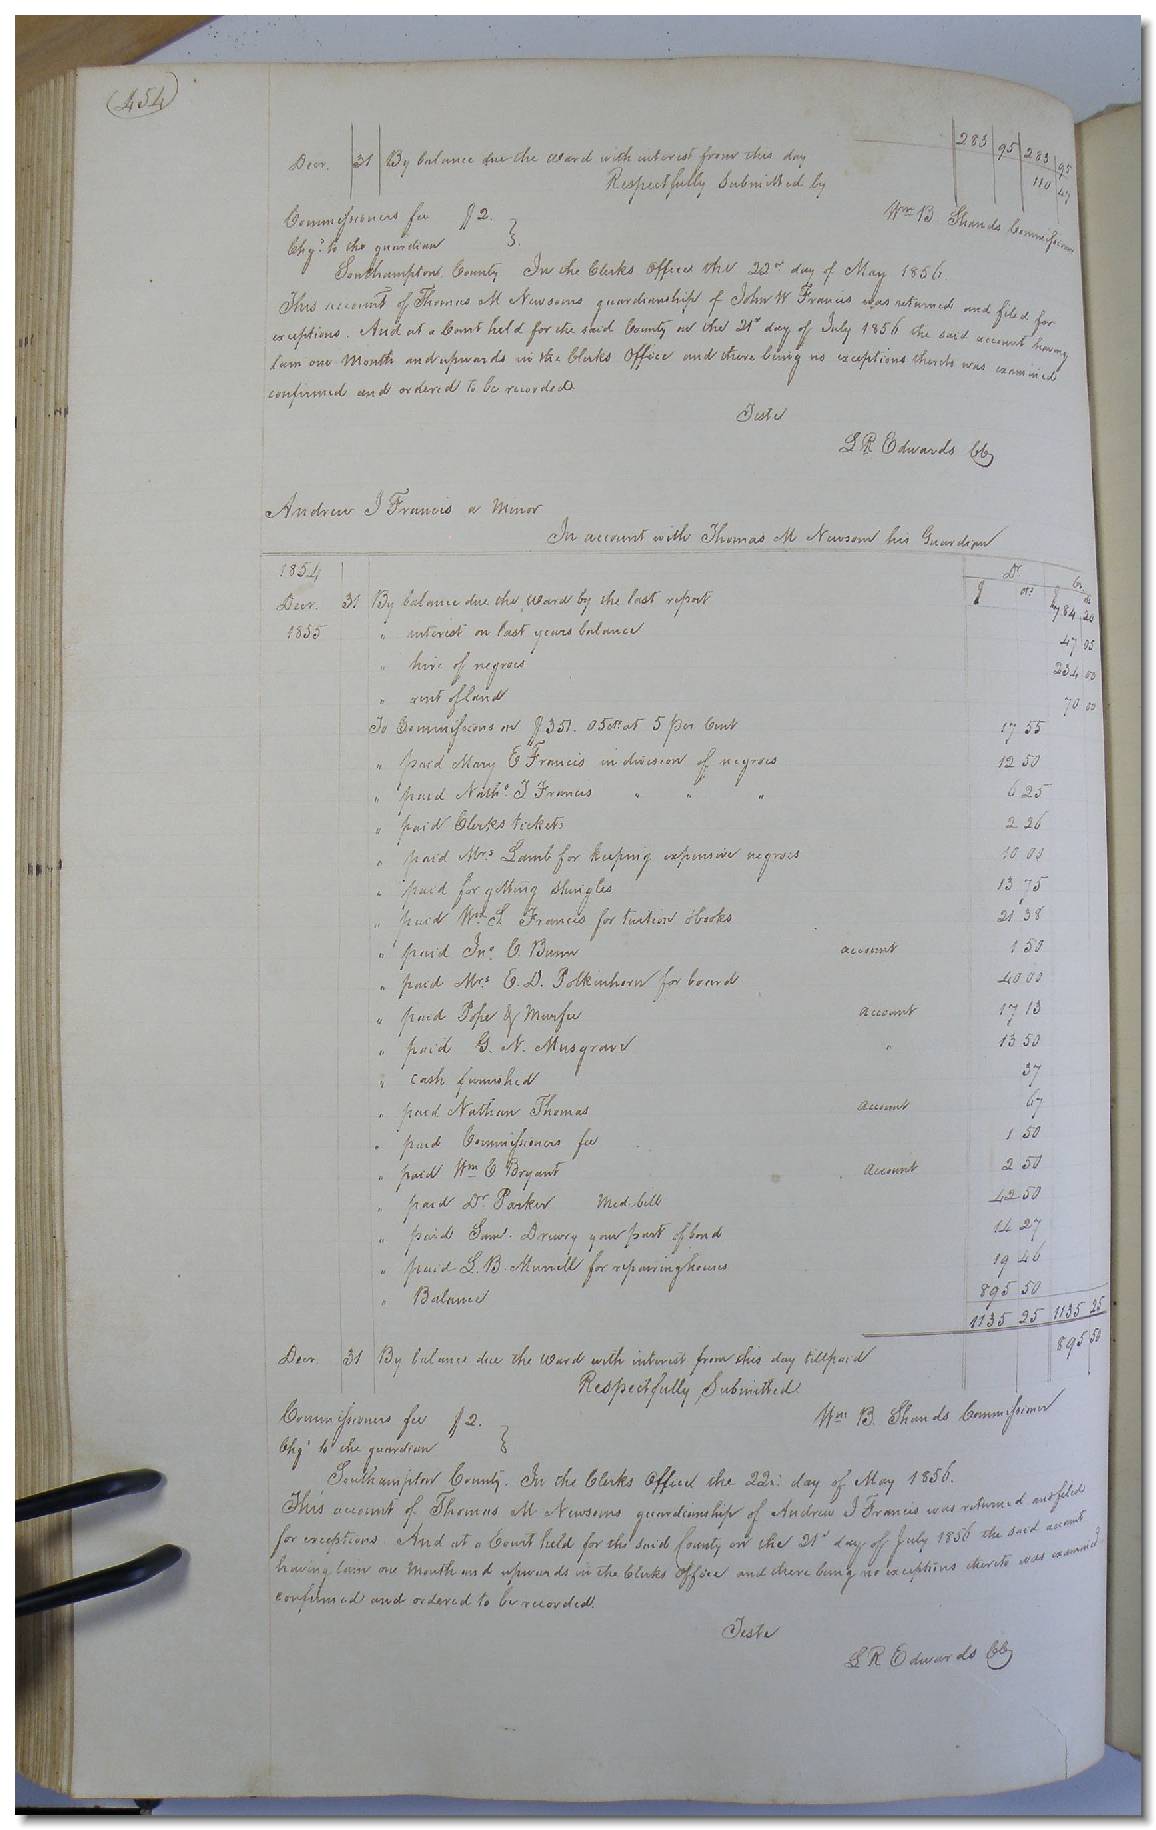 454
283 95 283 95
Decr. 31 By balance due the ward with interest from this day 110 47
Respectfully Submitted by
Wm B. Shands Commissioner
Commissioners fee $2. }
Chgd to the guardian
Southampton County. In the Clerks Office the 22nd day of May 1856.
This account of Thomas M Newsoms guardianship of John W Francis was returned and filed for
exceptions. And at a Court held for the said County on the 21st day of July 1856 the said account having
lain one Month and upwards in the Clerks Office and there being no exceptions thereto was examined
confirmed and ordered to be recorded
Teste
L R Edwards CC
Andrew J Francis a Minor
In account with Thomas M Newsom his Guardian
1854 Dr Cr
$ cts $ cts
Decr. 31 By balance due the ward by the last report 784 20
1855 " interest on last years balance 47 05
" hire of negroes 234 00
" rent of land 70 00
To Commissions on $351. 05cts at 5 per Cent 17 55
" paid Mary E Francis in division of negroes 12 50
" paid Nathl J Francis " " " 6 25
" paid Clerks tickets 2 26
" paid Mrs Lamb for keeping expensive negroes 10 00
" paid for getting shingles 13 75
" paid Wm S. Francis for tuition & books 21 38
" paid Jno C. Bunn account 1 50
" paid Mrs E. D. Polkenhorn for board 40 00
" paid Pope & Murfee account 17 13
" paid G. N. Musgrave " 13 50
" cash furnished 37
" paid Nathan Thomas account 67
" paid Commissioners fee 1 50
" paid Wm E Bryant account 2 50
" paid Dr Parker Med. bill 42 50
" paid Saml. Drewry your part of bond 14 27
" paid L. B. Murrell for repairing houses 19 46
" Balance 895 50
1135 25 1135 25
Decr. 31 By balance due the ward with interest from this day till paid 895 50
Respectfully Submitted
Wm B. Shands Commissioner
Commissioners fee $2. }
Chgd to the guardian
Southampton County. In the Clerks Office the 22d: day of May 1856.
This account of Thomas M Newsoms guardianship of Andrew J Francis was returned and filed
for exceptions. And at a Court held for the said County on the 21st day of July 1856 the said account
having lain one Month and upwards in the Clerks Office and there being no exceptions thereto was examined
confirmed and ordered to be recorded.
Teste
L R Edwards CC